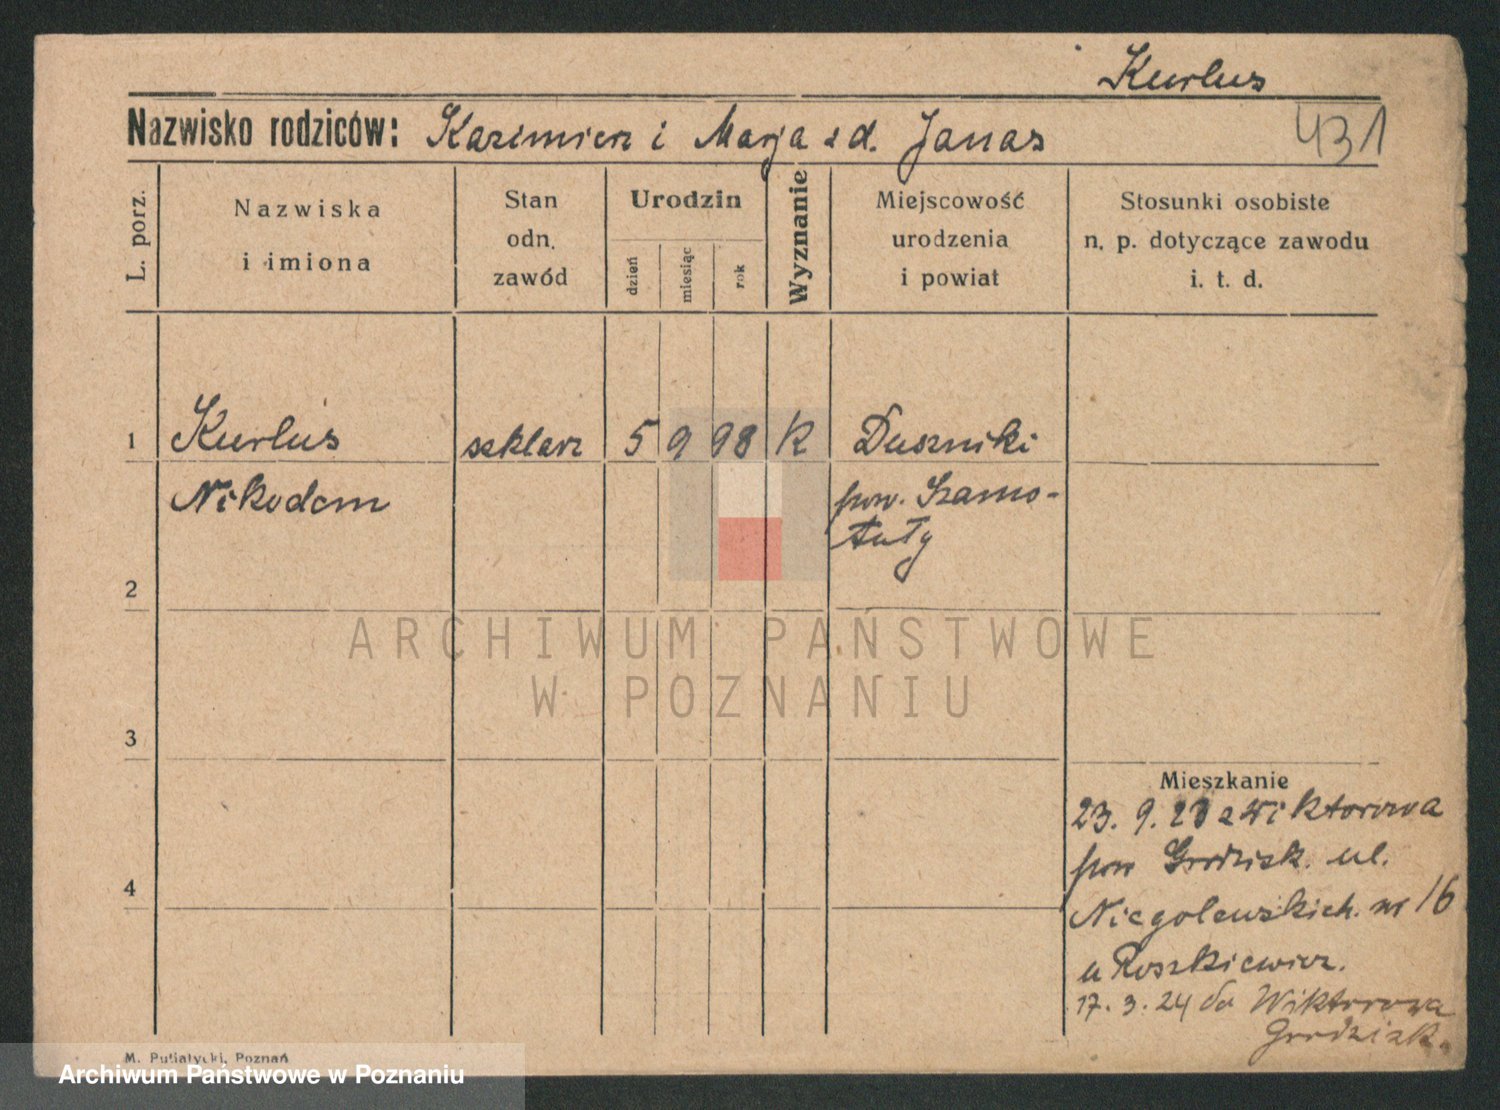 Kurlus
Nazwisko rodziców: Kazimierz i Marja z d. Janas
431
L. porz.
Nazwiska
i imiona
Stan
odn.
zawód
Urodzin
dzień
miesiąc
rok
Wyznanie
Miejscowość
urodzenia
i powiat
Stosunki osobiste
n. p. dotyczące zawodu
i. t. d.
1 Kurlus szklarz 5 9 98 K Duszniki
Nikodem pow. Szamo-
tuły
2
3
4
ARCHIWUM PAŃSTWOWE
W POZNANIU
Mieszkanie
23. 9. 23 z Wiktorowa
pow Grodzisk. ul.
Niegolewskich. nr 16
u Roszkiewicz.
17. 3. 24 do Wiktorowa
Grodzisk.
M. Putiatycki, Poznań
Archiwum Państwowe w Poznaniu